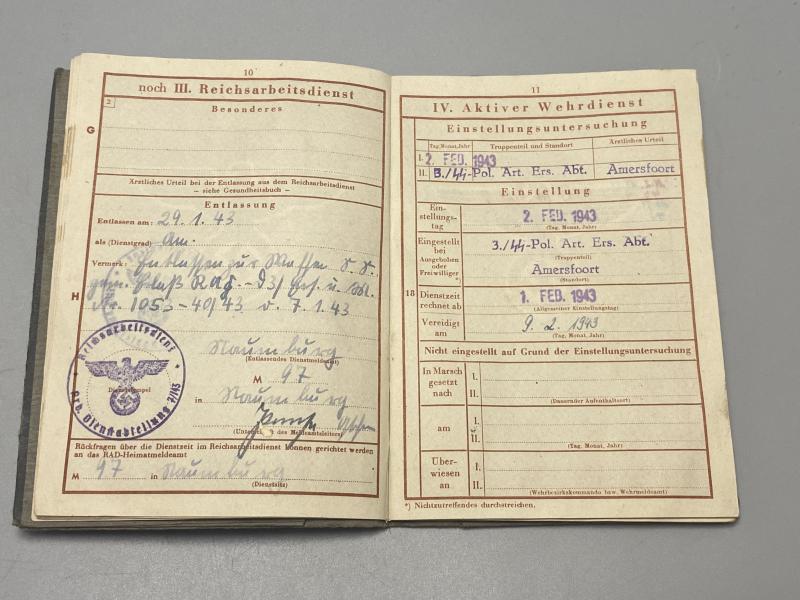 10
noch III. Reichsarbeitsdienst
2
Besonderes
G
Ärztliches Urteil bei der Entlassung aus dem Reichsarbeitsdienst
– siehe Gesundheitsbuch –
Entlassung
Entlassen am: 29.1.43
als (Dienstgrad) Am.
Vermerk: Entlassen zur Waffen S.S.
gem. Erlaß RAF.-
H
Nr. 1053-40/43 v. 7.1.43
Reichsarbeitsdienst
Dienststempel
Naumburg
(Entlassendes Dienstmeldeamt)
M 97
in Naumburg
(Unterschrift des Meldeamtsleiters)
Rückfragen über die Dienstzeit im Reichsarbeitsdienst können gerichtet werden
an das RAD-Heimatmeldeamt
M 97 in Naumburg
(Dienstsitz)
11
IV. Aktiver Wehrdienst
Einstellungsuntersuchung
Tag, Monat, Jahr Truppenteil und Standort Ärztliches Urteil
I. 2. FEB. 1943
II. 3./SS-Pol. Art. Ers. Abt. Amersfoort
Einstellung
Ein-
stellungs-
tag
2. FEB. 1943
(Tag, Monat, Jahr)
Eingestellt
bei
Ausgehoben
oder
Freiwilliger *)
3./SS-Pol. Art. Ers. Abt.
(Truppenteil)
Amersfoort
(Standort)
18
Dienstzeit
rechnet ab
1. FEB. 1943
(Allgemeiner Einstellungstag)
Vereidigt
am
9. 2. 1943
(Tag, Monat, Jahr)
Nicht eingestellt auf Grund der Einstellungsuntersuchung
In Marsch
gesetzt
nach
I.
II.
(Dauernder Aufenthaltsort)
am
I.
II.
(Tag, Monat, Jahr)
Über-
wiesen
an
I.
II.
(Wehrbezirkskommando bzw. Wehrmeldeamt)
*) Nichtzutreffendes durchstreichen.